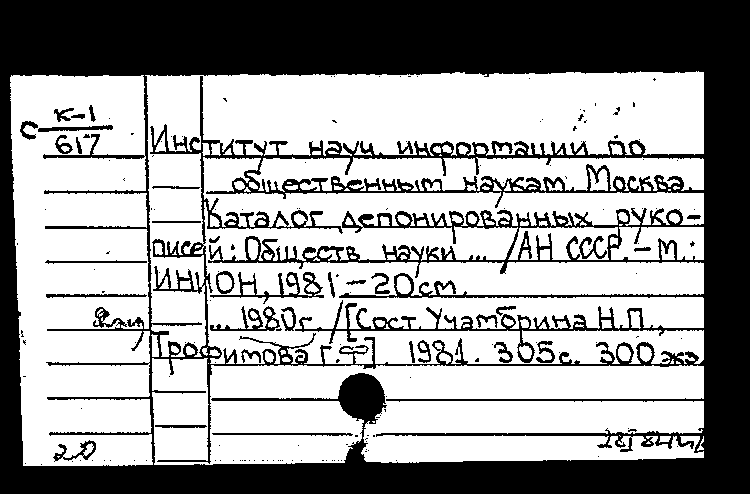 С К-1
617
Институт науч. информации по
общественным наукам. Москва.
Каталог депонированных руко-
писей: Обществ. науки ... / АН СССР. – М.:
ИНИОН, 1981 – 20см.
... 1980г. / [Сост. Учамбрина Н.П.,
Трофимова Г.Ф]. 1981. 305с. 300 экз.
20